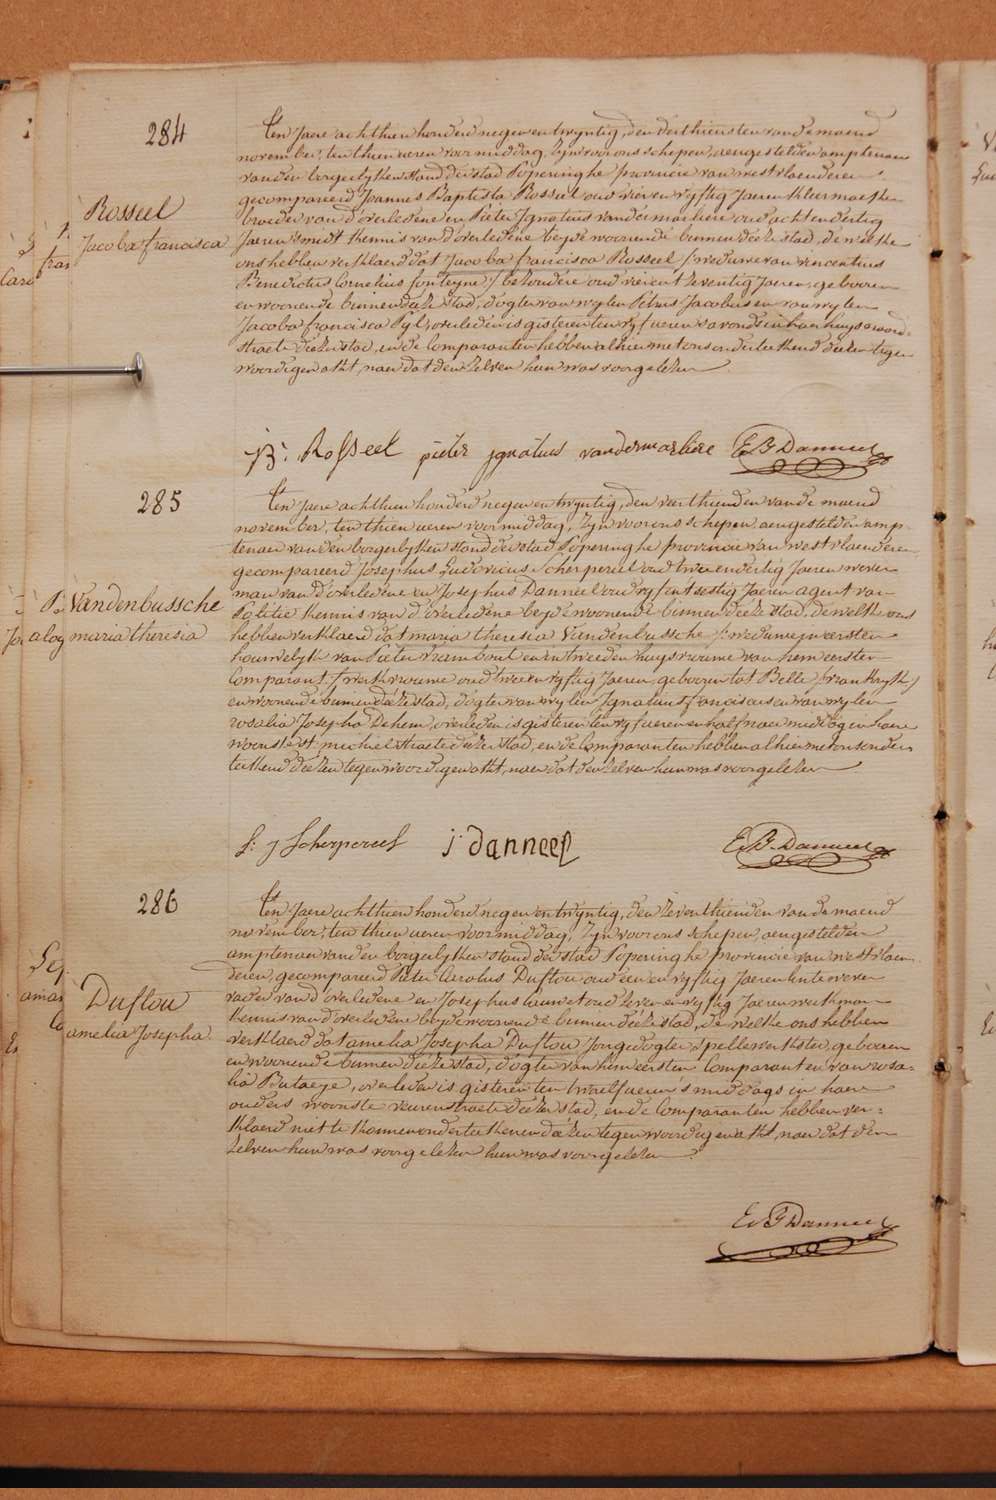 284
Rosseel
Jacoba francisca
Ten Jaere achthien honderd negen en twyntig, den derthiensten van de maend
november, ten thien ueren voormiddag, zyn voor ons schepen, aengestelden amptenaer
van den borgerlyken stand der stad Poperinghe provincie van westvlaenderen
gecompareerd Joannes Baptista Rosseel oud vier en vyftig Jaeren kleermaeker
broeder van d'overledene en Pieter Ignatius vandermarliere oud acht en dertig
Jaeren smidt kennis van d'overledene beyde woonende binnen déeze stad, de welke
ons hebben verklaerd dat Jacoba francisca Rosseel / weduwe van vincentius
Benedictus Cornelius fonteyne / bezondere oud vier en zeventig Jaeren, geboren
en woonende binnen deeze stad, dogter van wylen Petrus Jacobus en van wylen
Jacoba francisca Pyl, overleden is gisteren ten vyf ueren s'avonds in haer huys
straete deeze stad, en de Comparanten hebben alhier met ons onderteekend deezen tegen
woordigen akt, naer dat den zelven hun was voorgelezen
JB: Rosseel pieter ygnatius vandermarliere E B Danneel
285
Vandenbussche
maria theresia
Ten Jaere achthien honderd negen en twyntig, den veerthienden van de maend
november, ten thien ueren voormiddag, zyn voor ons schepen, aengestelden amp-
tenaer van den borgerlyken stand der stad Poperinghe provincie van westvlaenderen,
gecompareerd Josephus Ludovicus Scherpereel oud twee en dertig Jaeren wever
man van d'overledene en Josephus Danneel oud vyf en tsestig Jaeren agent van
Politie kennis van d'overledene beyde woonende binnen deeze stad, de welke ons
hebben verklaerd dat maria theresia Vandenbussche / weduwe in eersten
houwelyk van Pieter Frambout en in tweeden huysvrouwe van hem eersten
Comparant / werkvrouwe oud twee en vyftig Jaeren, geboren tot Belle /
en woonende binnen deeze stad, dogter van wylen Ignatius franciscus en van wylen
rosalia Josepha Dehem, overleden is gisteren ten vyf ueren en half naermiddag in haere
woonste st michiel straete deeze stad, en de Comparanten hebben alhier met ons onder
teekend deezen tegenwoordigen akt, naer dat den zelven hun was voorgelezen
L: J Scherpereel j: danneel E B Danneel
286
Duflou
amelia Josepha
Ten Jaere achthien honderd negen en twyntig, den zeventhienden van de maend
november, ten thien ueren voormiddag, zyn voor ons schepen, aengestelden
amptenaer van den borgerlyken stand der stad Poperinghe provincie van westvlaen
deren, gecompareerd Pieter Carolus Duflou oud een en vyftig Jaeren lintewever
vader van d'overledene en Josephus oud zeven en vyftig Jaeren werkman
kennis van d'overledene beyde woonende binnen déeze stad, de welke ons hebben
verklaerd dat amelia Josepha Duflou Jonge dogter spellewerkster, geboren
en woonende binnen déeze stad, dogter van hem eersten Comparant en van rosa-
lia Butaeye, overleden is gisteren ten twaelf ueren s'middags in haere
ouders woonste veurenstraete deeze stad, en de Comparanten hebben ver-
klaerd niet te konnen onderteekenen deezen tegenwoordigen akt, naer dat den
zelven hun was voorgelezen hun was voorgelezen
E B Danneel